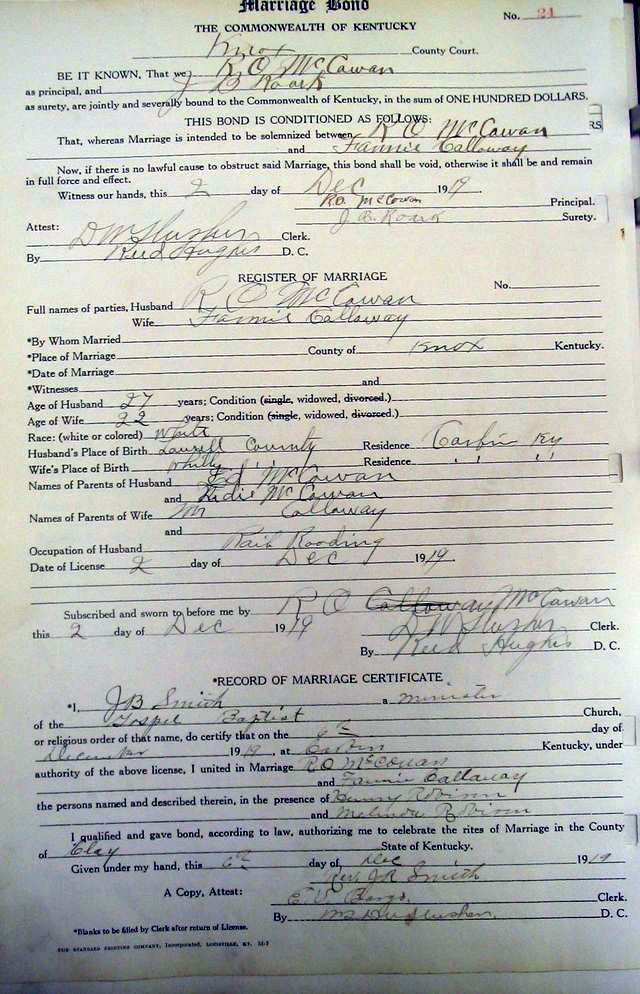 Marriage Bond
No. 21
THE COMMONWEALTH OF KENTUCKY
Knox County Court.
BE IT KNOWN, That we R. O. McCawan
as principal, and J B Roark
as surety, are jointly and severally bound to the Commonwealth of Kentucky, in the sum of ONE HUNDRED DOLLARS.
THIS BOND IS CONDITIONED AS FOLLOWS:
RS
That, whereas Marriage is intended to be solemnized between R O McCawan
and Fannie Calloway
Now, if there is no lawful cause to obstruct said Marriage, this bond shall be void, otherwise it shall be and remain
in full force and effect.
Witness our hands, this 2 day of Dec 1919.
R.O. McCawan Principal.
J. B. Roark Surety.
Attest: D M Slusher Clerk.
By Reed Hughes D. C.
REGISTER OF MARRIAGE
No.
Full names of parties, Husband R O McCawan
Wife Fannie Calloway
*By Whom Married
*Place of Marriage County of Knox Kentucky.
*Date of Marriage
*Witnesses and
Age of Husband 27 years; Condition (single, widowed, divorced.)
Age of Wife 22 years; Condition (single, widowed, divorced.)
Race: (white or colored) White
Husband's Place of Birth Laurell County Residence Corbin Ky
Wife's Place of Birth Whitley " " Residence " " "
Names of Parents of Husband Ed McCawan
and McCawan
Names of Parents of Wife Mr Calloway
and
Occupation of Husband Rail Roading
Date of License 2 day of Dec 1919.
Subscribed and sworn to before me by R O Calloway McCawan
this 2 day of Dec 1919
D M Slusher Clerk.
By Reed Hughes D. C.
*RECORD OF MARRIAGE CERTIFICATE
*I, J B Smith a minister
of the Gospel Baptist Church,
or religious order of that name, do certify that on the 6th day of
December 1919, at Corbin Kentucky, under
authority of the above license, I united in Marriage R.O. McCowan
and Fannie Callaway
the persons named and described therein, in the presence of Henry Robinson
and Malinda Robinson
I qualified and gave bond, according to law, authorizing me to celebrate the rites of Marriage in the County
of Clay State of Kentucky.
Given under my hand, this 6th day of, Dec 1919
Rev. J B Smith
A Copy, Attest: Clerk.
By D. C.
*Blanks to be filled by Clerk after return of License.
THE STANDARD PRINTING COMPANY, Incorporated, LOUISVILLE, KY.